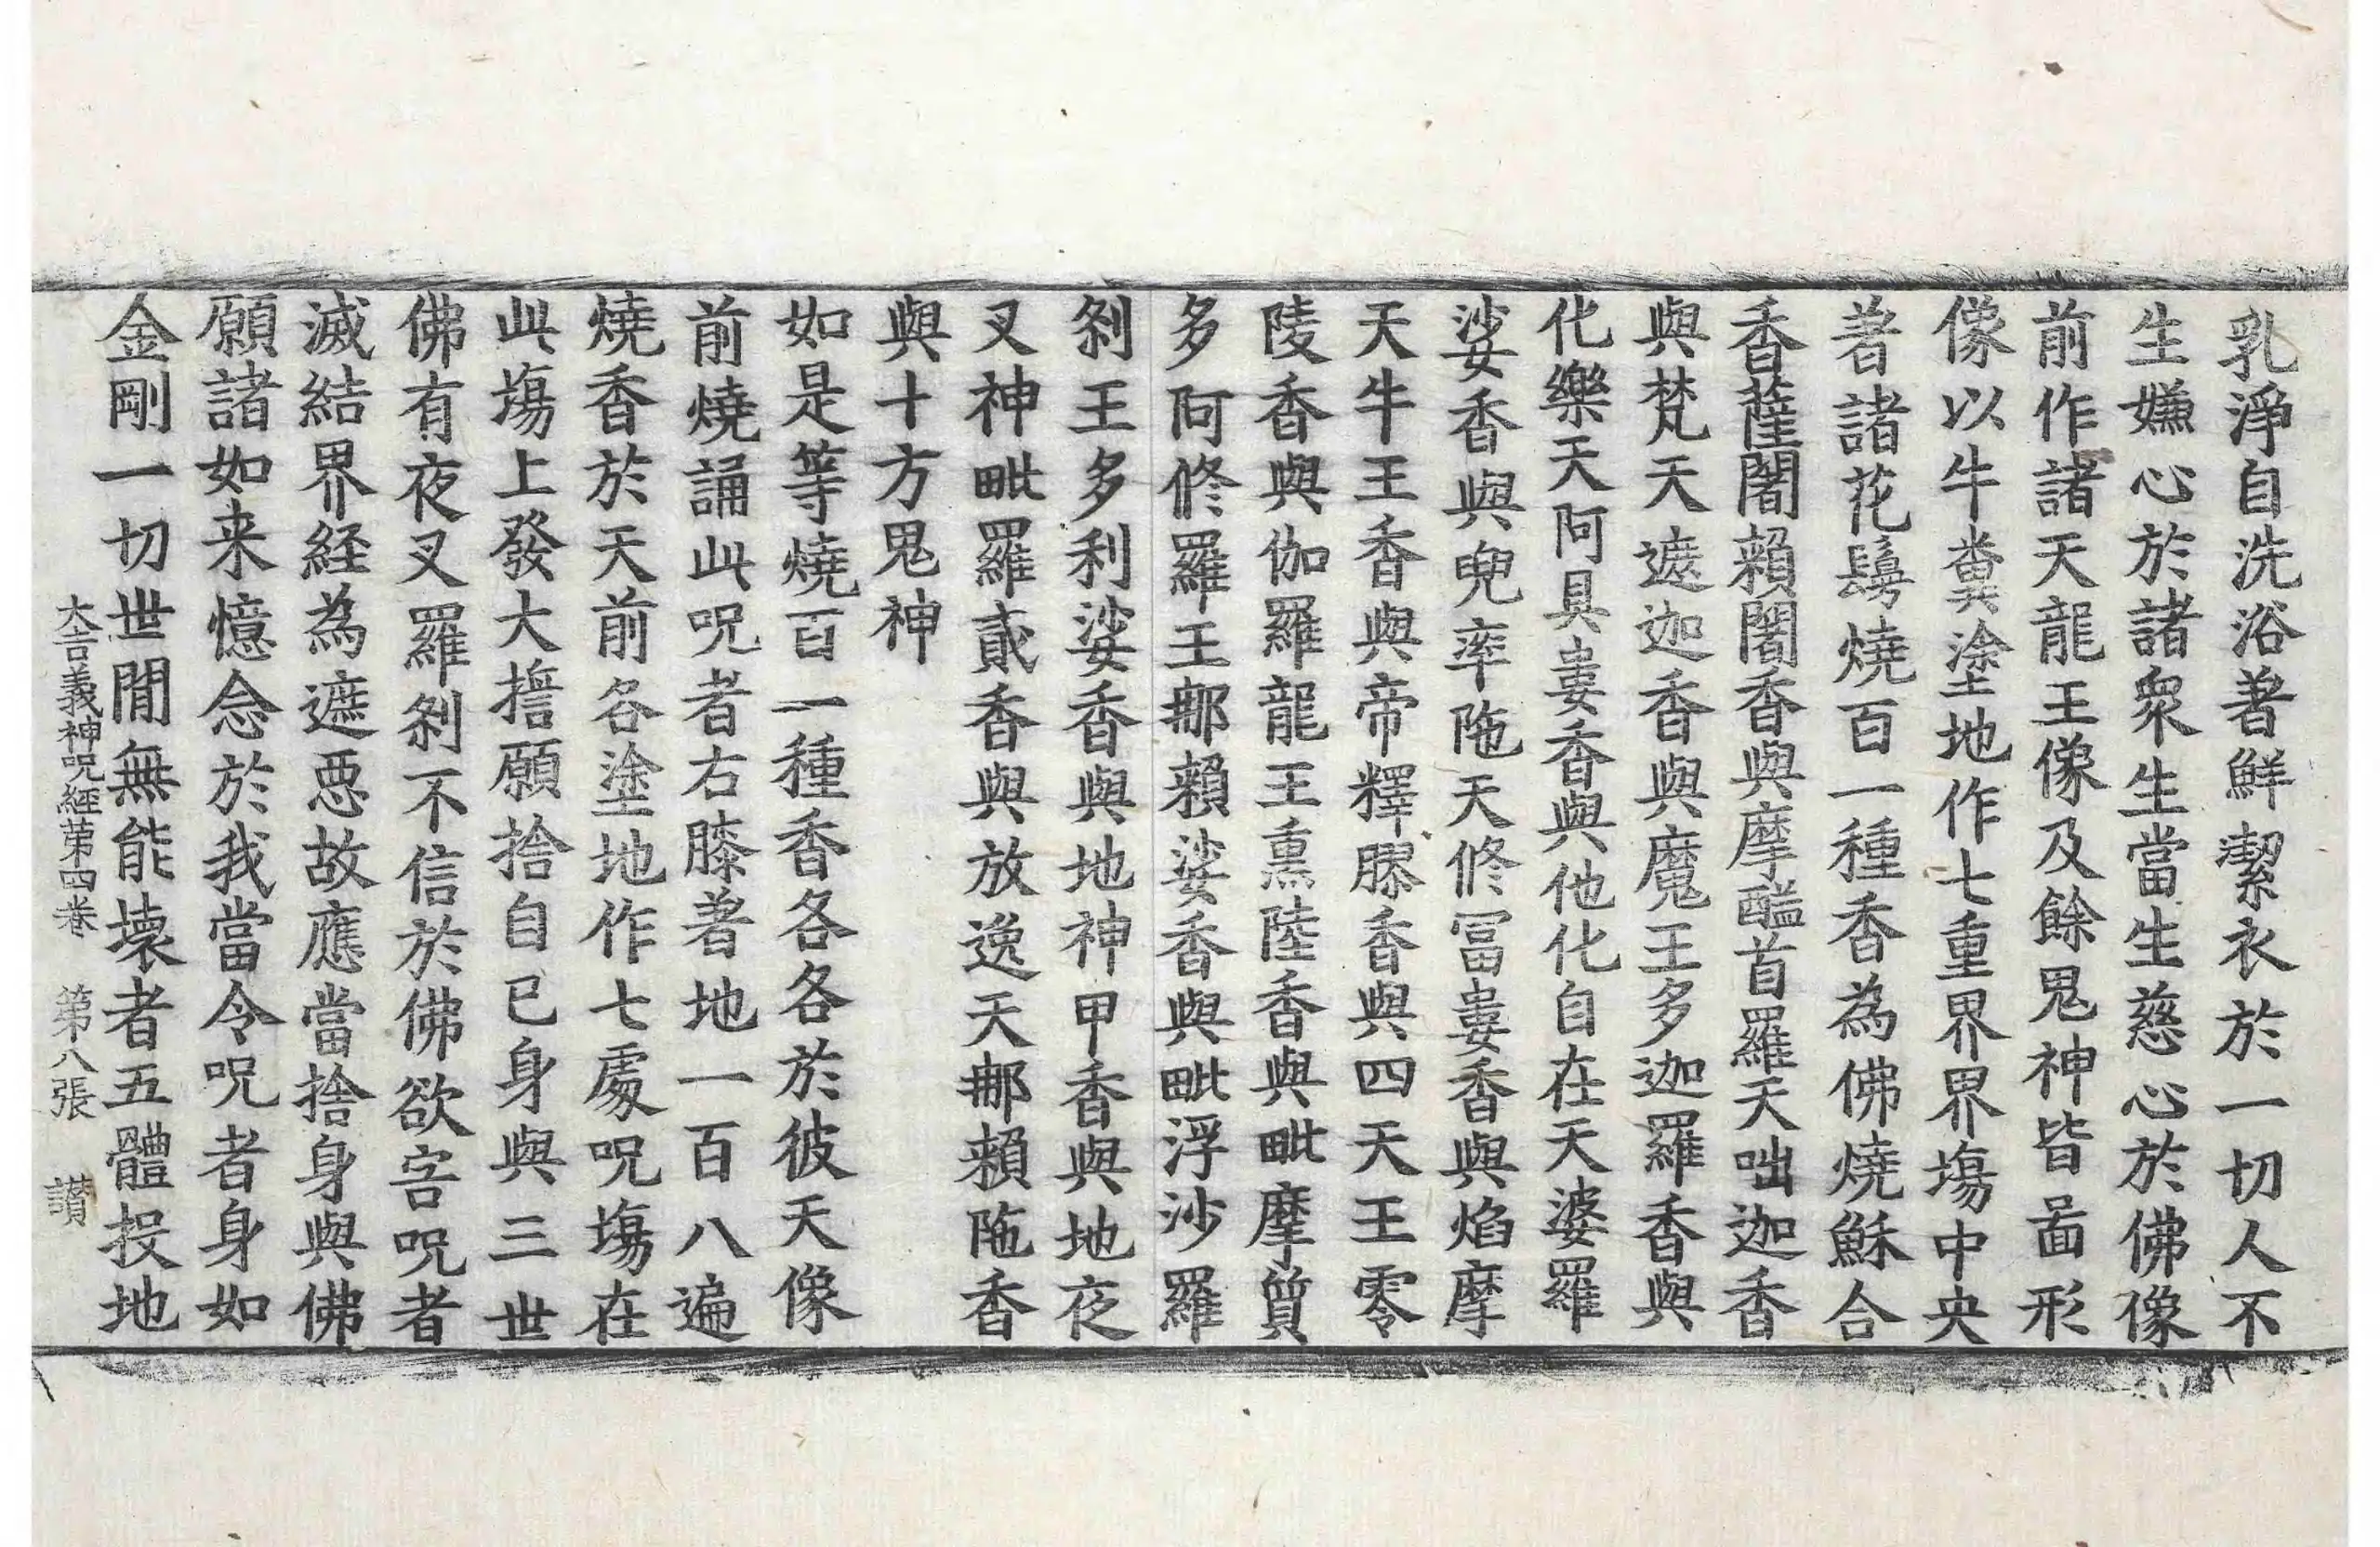 乳淨自洗浴著鮮潔衣於一切人不
生嫌心於諸衆生當生慈心於佛像
前作諸天龍王像及餘鬼神皆畐形
像以牛糞塗地作七重界界塲中央
著諸花鬘燒百一種香為佛燒蘇合
香薩闍賴闍香與摩醯首羅天咄迦香
與梵天遮迦香與魔王多迦羅香與
化樂天阿具婁香與他化自在天婆羅
娑香與兜率陁天修冨婁香與焰摩
天牛王香與帝釋膠香與四天王零
陵香與伽羅龍王熏陸香與毗摩質
多阿修羅王那賴娑香與毗浮沙羅
剎王多利娑香與地神甲香與地夜
叉神毗羅貳香與放逸天那賴陁香
與十方鬼神
如是等燒百一種香各各於彼天像
前燒誦此呪者右膝著地一百八遍
燒香於天前各塗地作七處呪塲在
此塲上發大擔願捨自已身與三世
佛有夜叉羅剎不信於佛欲害呪者
滅結界経為遮惡故應當捨身與佛
願諸如来憶念於我當令呪者身如
金剛一切世間無能壞者五體投地
大吉義神呪經第四卷 第八張 讚